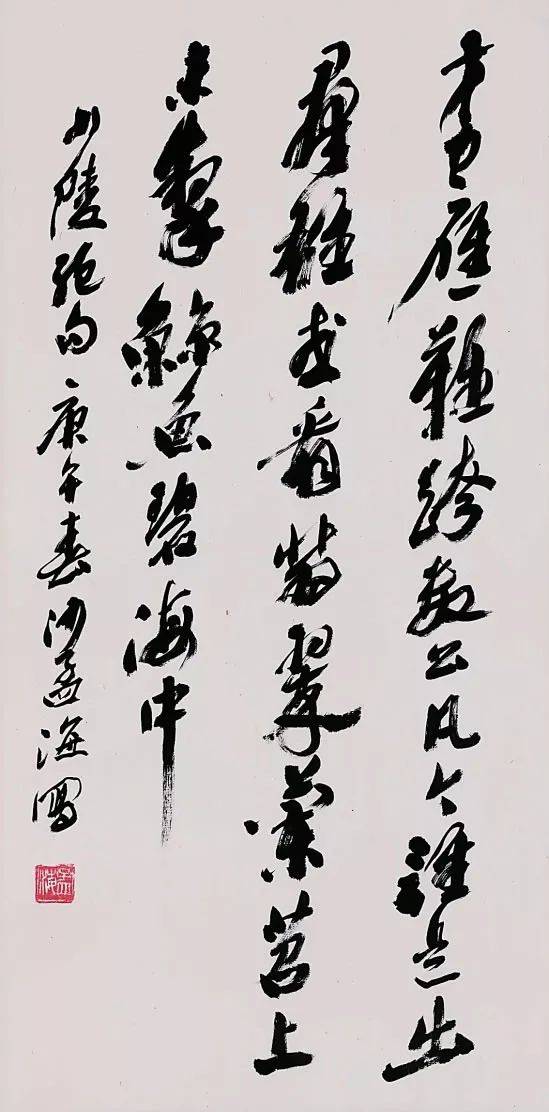 才力應難跨數公凡今誰是出
羣雄或看翡翠蘭苕上
未掣鯨魚碧海中
少陵絕句 庚午春 沙孟海
孟海